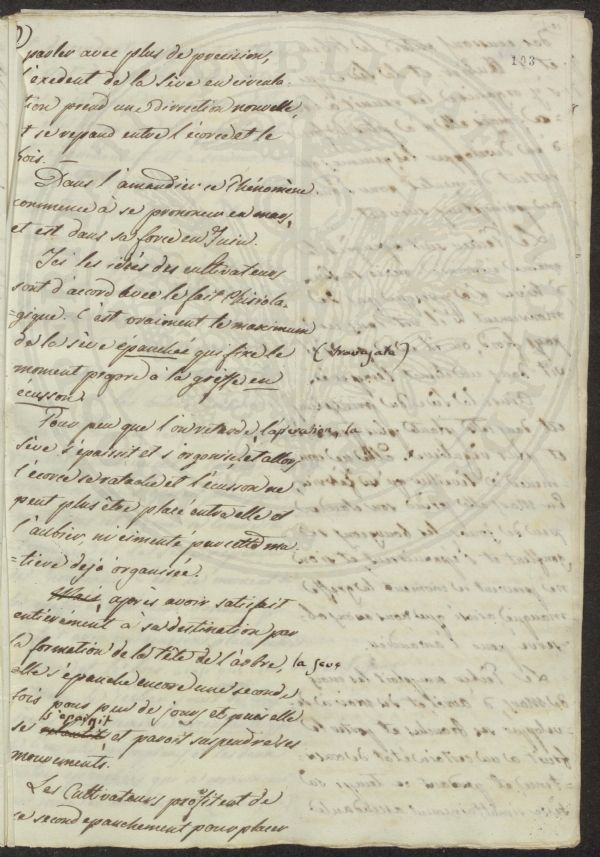 103
parler avec plus de precision,
l'exedent de la Séve en circula-
tion prend une Dirrection nouvelle,
et se repand entre l'écorce et le
bois.
Dans l'amandier ce Phénoméne
commence à se prononcer en mars,
et est dans sa force en Juin.
Ici les idées des cultivateurs
sont d'accord avec le fait Phisiolo-
=gique. C'est vraiment le maximum
de la séve épanchée qui fixe le
moment propre à la greffe en
écusson.
Pour peu que l'on retarde l'operation, la
séve s'épaissit et s'organise, et alors
l'écorce se ratache et l'écusson ne
peut plus être placé entre elle et
l'aubier, ni cimenté par cette ma-
=tiere dejà organisée.
Mais, après avoir satisfait
entiérément a sa destination par
la formation de la tête de l'arbre, la seve
elle s'épanche encore une seconde
fois pour peu de jours et puis elle
s'epaissit
se et paroit suspendre ses
mouvements.
Les Cultivateurs profitent de
ce second epanchement pour placer